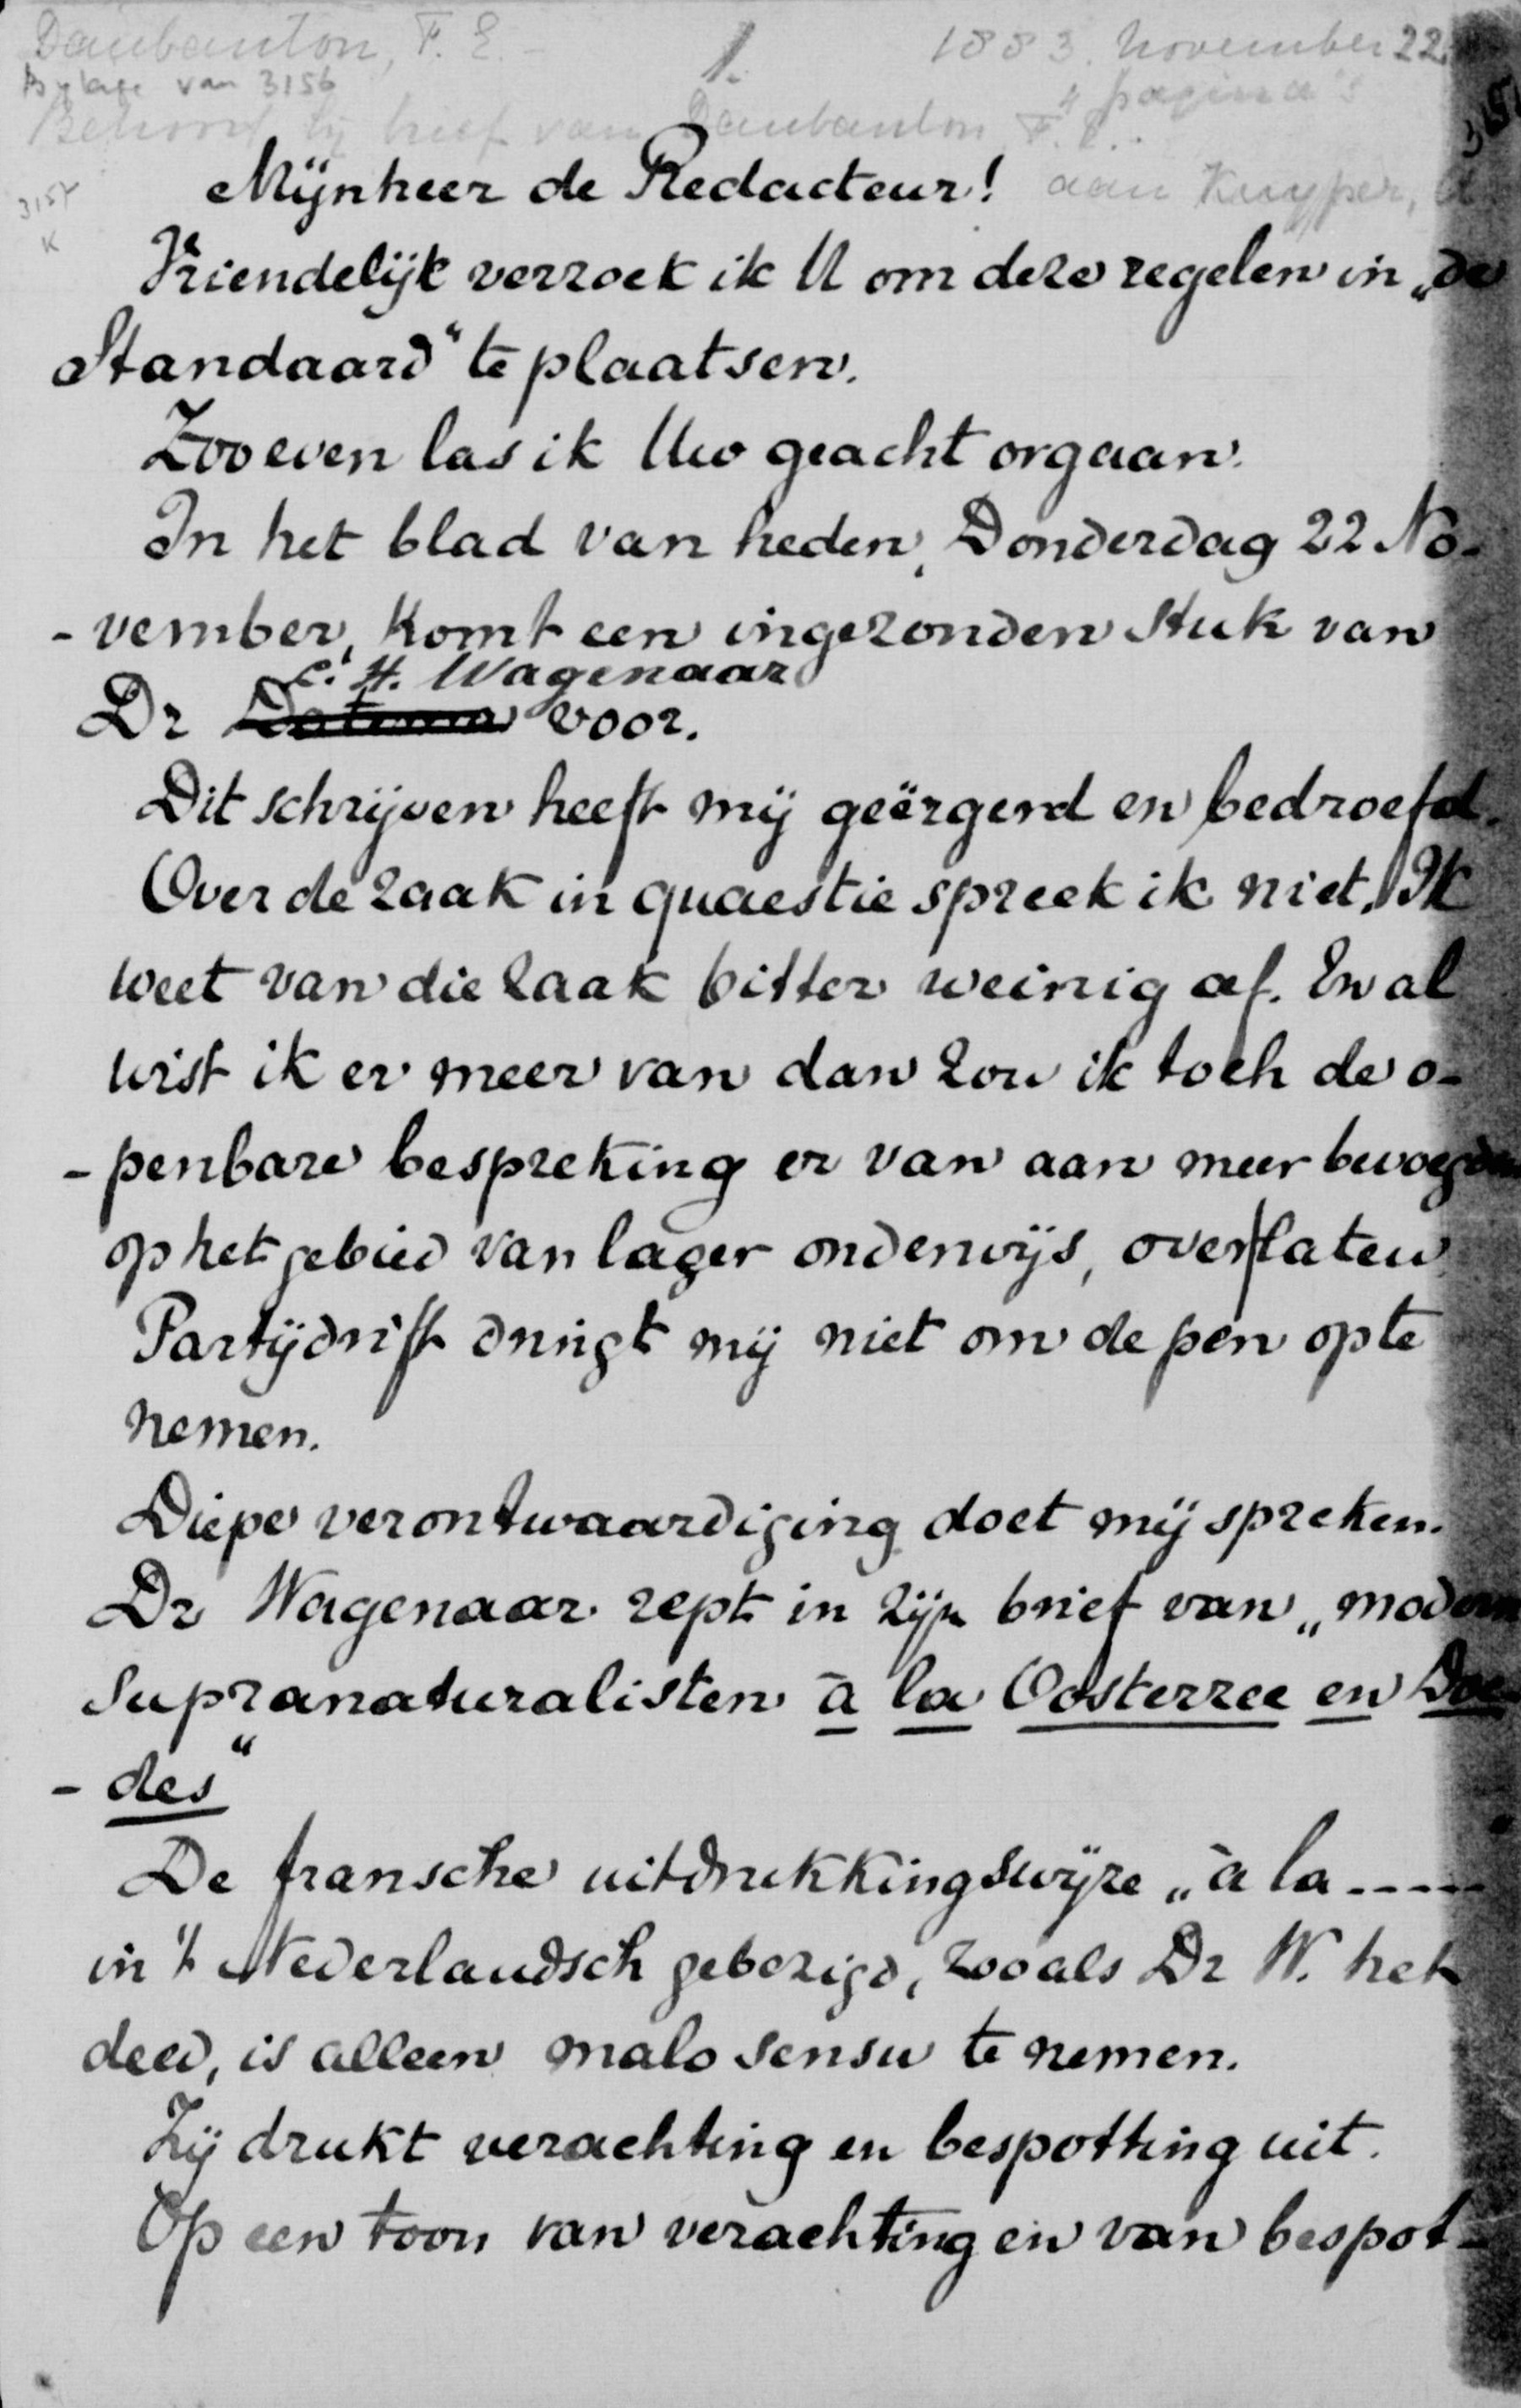 Daubanton, F. E. 1. 1883. November 22
Bylage van 3156 4 pagina's
Behoort bij brief van Daubanton F. E.
3157 Mijnheer de Redacteur! aan Kuyper, A
K
Vriendelijk verzoek ik U om deze regelen in „de
Standaard" te plaatsen.
Zoo even las ik Uw geacht orgaan.
In het blad van heden, Donderdag 22 No-
-vember, komt een ingezonden stuk van
L. H. Wagenaar
Dr voor.
Dit schrijven heeft mij geërgerd en bedroefd.
Over de zaak in quaestie spreek ik niet. Ik
weet van die zaak bitter weinig af. En al
wist ik er meer van dan zou ik toch de o-
-penbare bespreking er van aan meer bevoegden
op het gebied van lager onderwijs, overlaten.
Partijdrift dringt mij niet om de pen op te
nemen.
Diepe verontwaardiging doet mij spreken.
Dr Wagenaar rept in zijn brief van „modern
supranaturalisten à la Oosterzee en Doe-
-des"
De fransche uitdrukkingswijze „à la -----
in 't Nederlandsch gebezigd, zooals Dr W. het
deed, is alleen malo sensu te nemen.
Zij drukt verachting en bespotting uit.
Op een toon van verachting en van bespot-